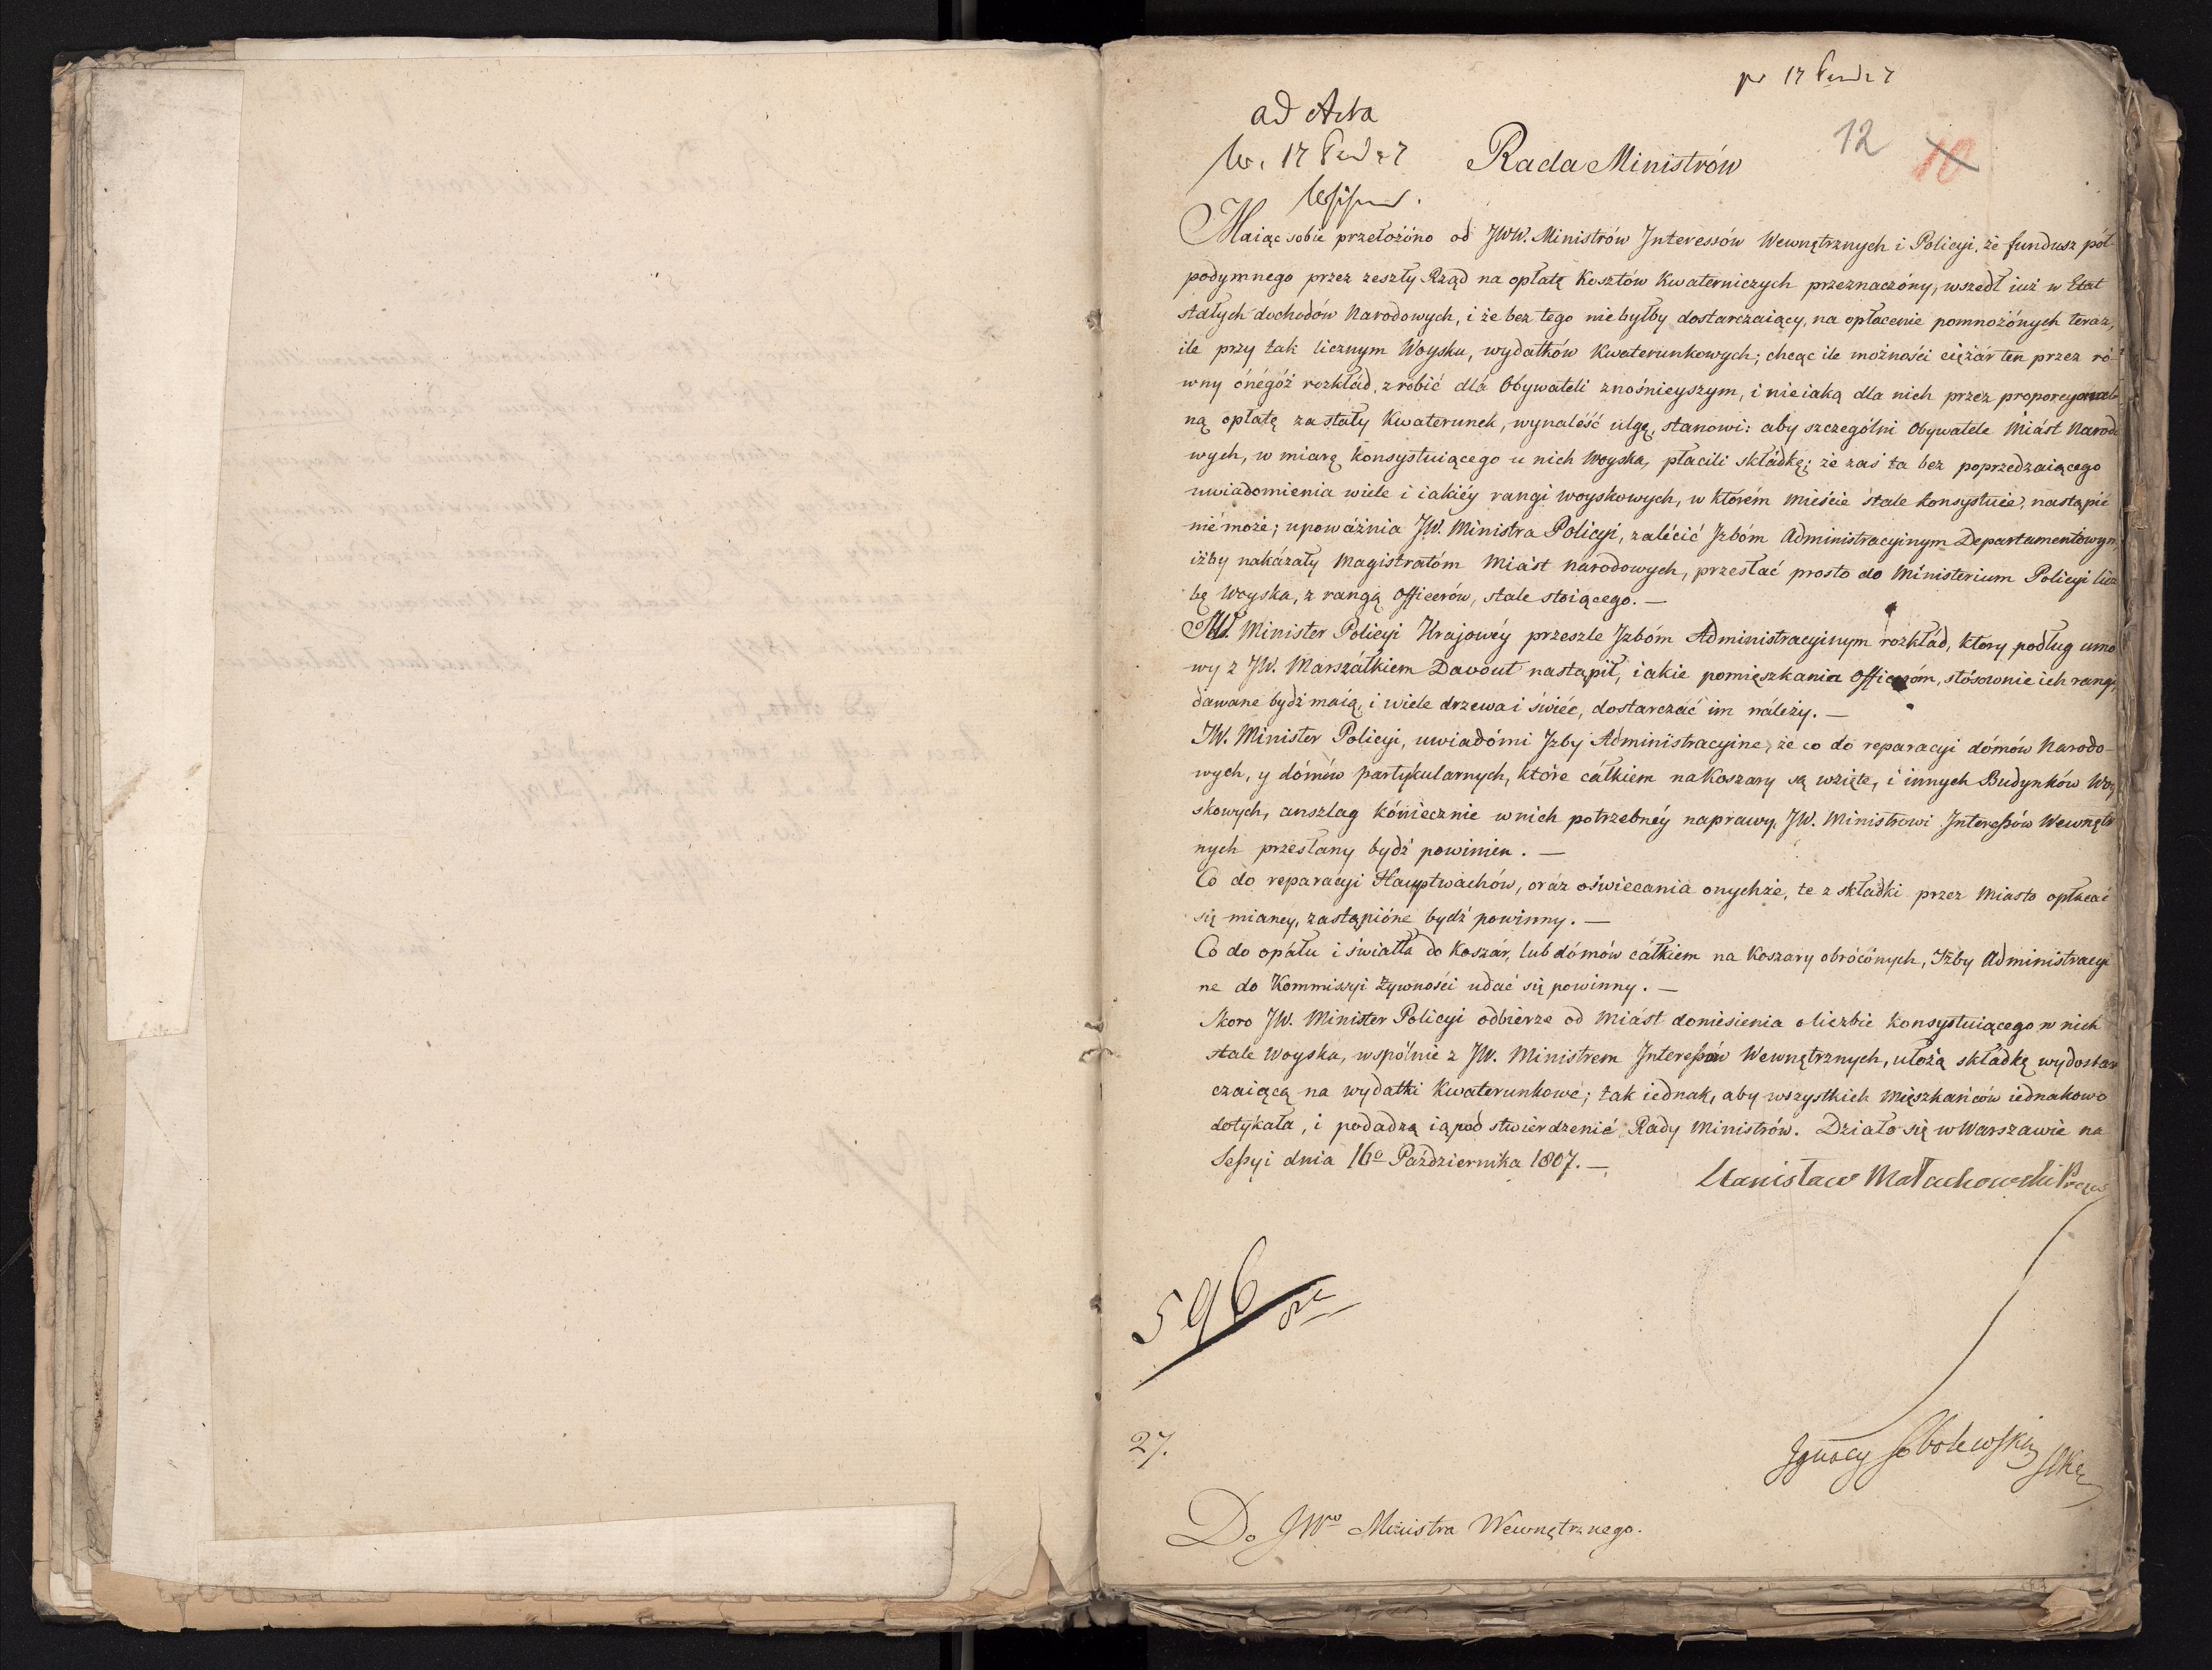 ad Acta
12
10
Rada Ministrów
Maiąc sobie przełożóno od JWW. Ministrów Jnteressów Wewnętrznych i Policyi, że fundusz pół-
podymnego przez zeszły Rząd na opłatę Kosztów Kwaterniczych przeznaczóny, wszedł iuż w Etat
stałych dochodów Narodowych, i że bez tego nie byłby dostarczaiący, na opłacenie pomnożónych teraz,
ile przy tak licznym Woysku, wydatków Kwaterunkowych; chcąc ile możności ciężár ten przez ró-
wny ónégóż rozkłád, zrobić dlá Obywateli znośnieyszym, i nieiaką dla nich przez proporcyonal-
ną opłatę za stały Kwaterunek, wynaléść ulgę, stanowi: aby szczególni Obywatele Miást Narodo
wych, w miarę konsystuiącego u nich Woyska, płacili składkę; że zaś ta bez poprzedzaiącego
uwiadomienia wiele i iakiéy rangi woyskowych, w którém mieście stale konsystuie, nastąpić
nié może; upoważnia JW. Ministra Policyi, zalécić Jzbóm Administracyinym Departamentowym,
iżby nakázały Magistratóm Miást Narodowych, przesłać prosto do Ministerium Policyi licz
bę Woyska, z rangą Officerów, stale stoiącego. —
JW. Minister Policyi Krajowéy przeszle Jzbóm Administracyinym rozkłád, który podług umo
wy z JW. Marszáłkiem Davout nastąpił, iakie pomięszkania Officeróm, stósownie ich rangi,
dawane bydź maią, i wiele drzewa i świéc, dostarczáć im nálezy. —
JW. Minister Policyi, uwiadómi Jzby Administracyine, że co do reparacyi dómów Narodo-
wych, y dómów partykularnych, które cáłkiem na Koszary są wzięte, i innych Budynków Woy
skowych, anszlag kóniecznie w nich potrzebnéy naprawy, JW. Ministrowi Jnteressów Wewnętrz
nych przesłany bydź powinien. —
Co do reparacyi Hauptwachów, oráz oświecania onychże, te z składki przez Miasto opłacać
się mianey, zastąpióne bydź powinny. —
Co do opáłu i światła do Koszár, lub dómów cáłkiem na Koszary obrócónych, Jzby Administracyi
ne do Kommissyi Żywności udać się powinny. —
Skoro JW. Minister Policyi odbierze od Miást doniesienia o liczbie konsystuiącego w nich
stale Woyska, wspólnie z JW. Ministrem Jnteressów Wewnętrznych, ułożą składkę wydostar
czaiącą na wydatki Kwaterunkowé; tak iednak, aby wszystkich Mięszkańców iednakowo
dotykała, i podadzą ią pod stwierdzenié Rady Ministrów. Działo się w Warszawie na
Sessyi dnia 16o Października 1807. —
Stanisław Małachowski Prezes
596
27.
Jgnacy Sobolewski
Do JWo Ministra Wewnętrznego.